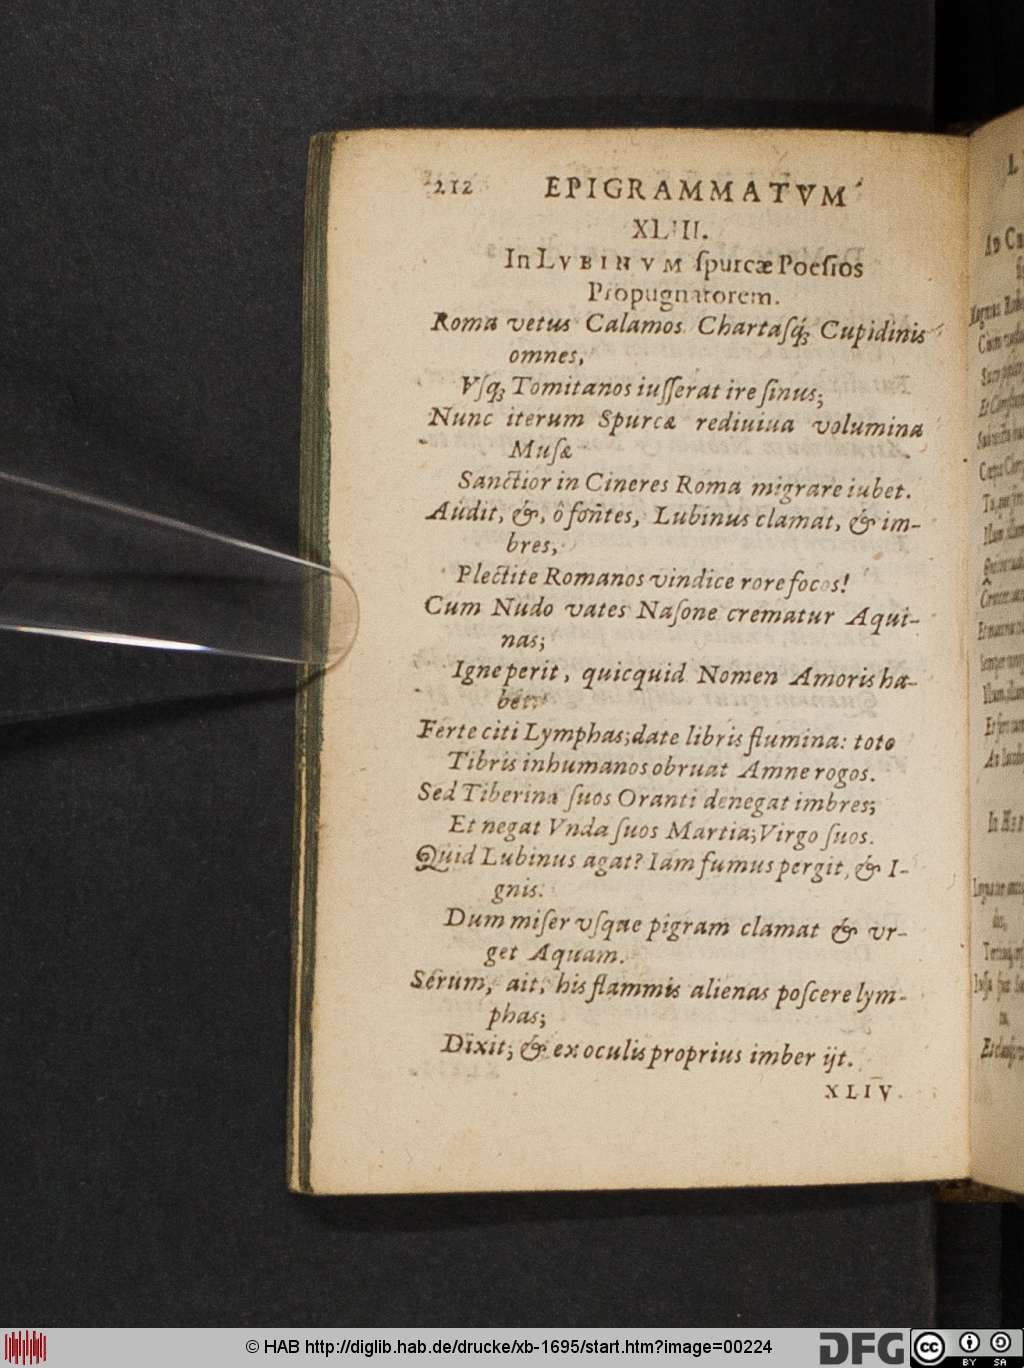 212 EPIGRAMMATVM
XLIII.
In LVBINVM ſpurcæ Poeſios
Propugnatorem.
Roma vetus Calamos Chartaſq́ꝫ Cupidinis
omnes,
Vſqꝫ Tomitanos iuſſerat ire ſinus;
Nunc iterum Spurcæ rediuiua volumina
Muſæ
Sanctior in Cineres Roma migrare iubet.
Audit, &, ô fontes, Lubinus clamat, & im-
bres,
Plectite Romanos vindice rore focos!
Cum Nudo vates Naſone crematur Aqui-
nas;
Igne perit, quicquid Nomen Amoris ha-
bet:
Ferte citi Lymphas; date libris flumina: toto
Tibris inhumanos obruat Amne rogos.
Sed Tiberina ſuos Oranti denegat imbres;
Et negat Vnda ſuos Martia; Virgo ſuos.
Quid Lubinus agat? Iam fumus pergit, & I-
gnis.
Dum miſer vſque pigram clamat & vr-
get Aquam.
Serum, ait, his flammis alienas poſcere lym-
phas;
Dixit; & ex oculis proprius imber ijt.
XLIV.
© HAB http://diglib.hab.de/drucke/xb-1695/start.htm?image=00224
DFG
cc
BY SA